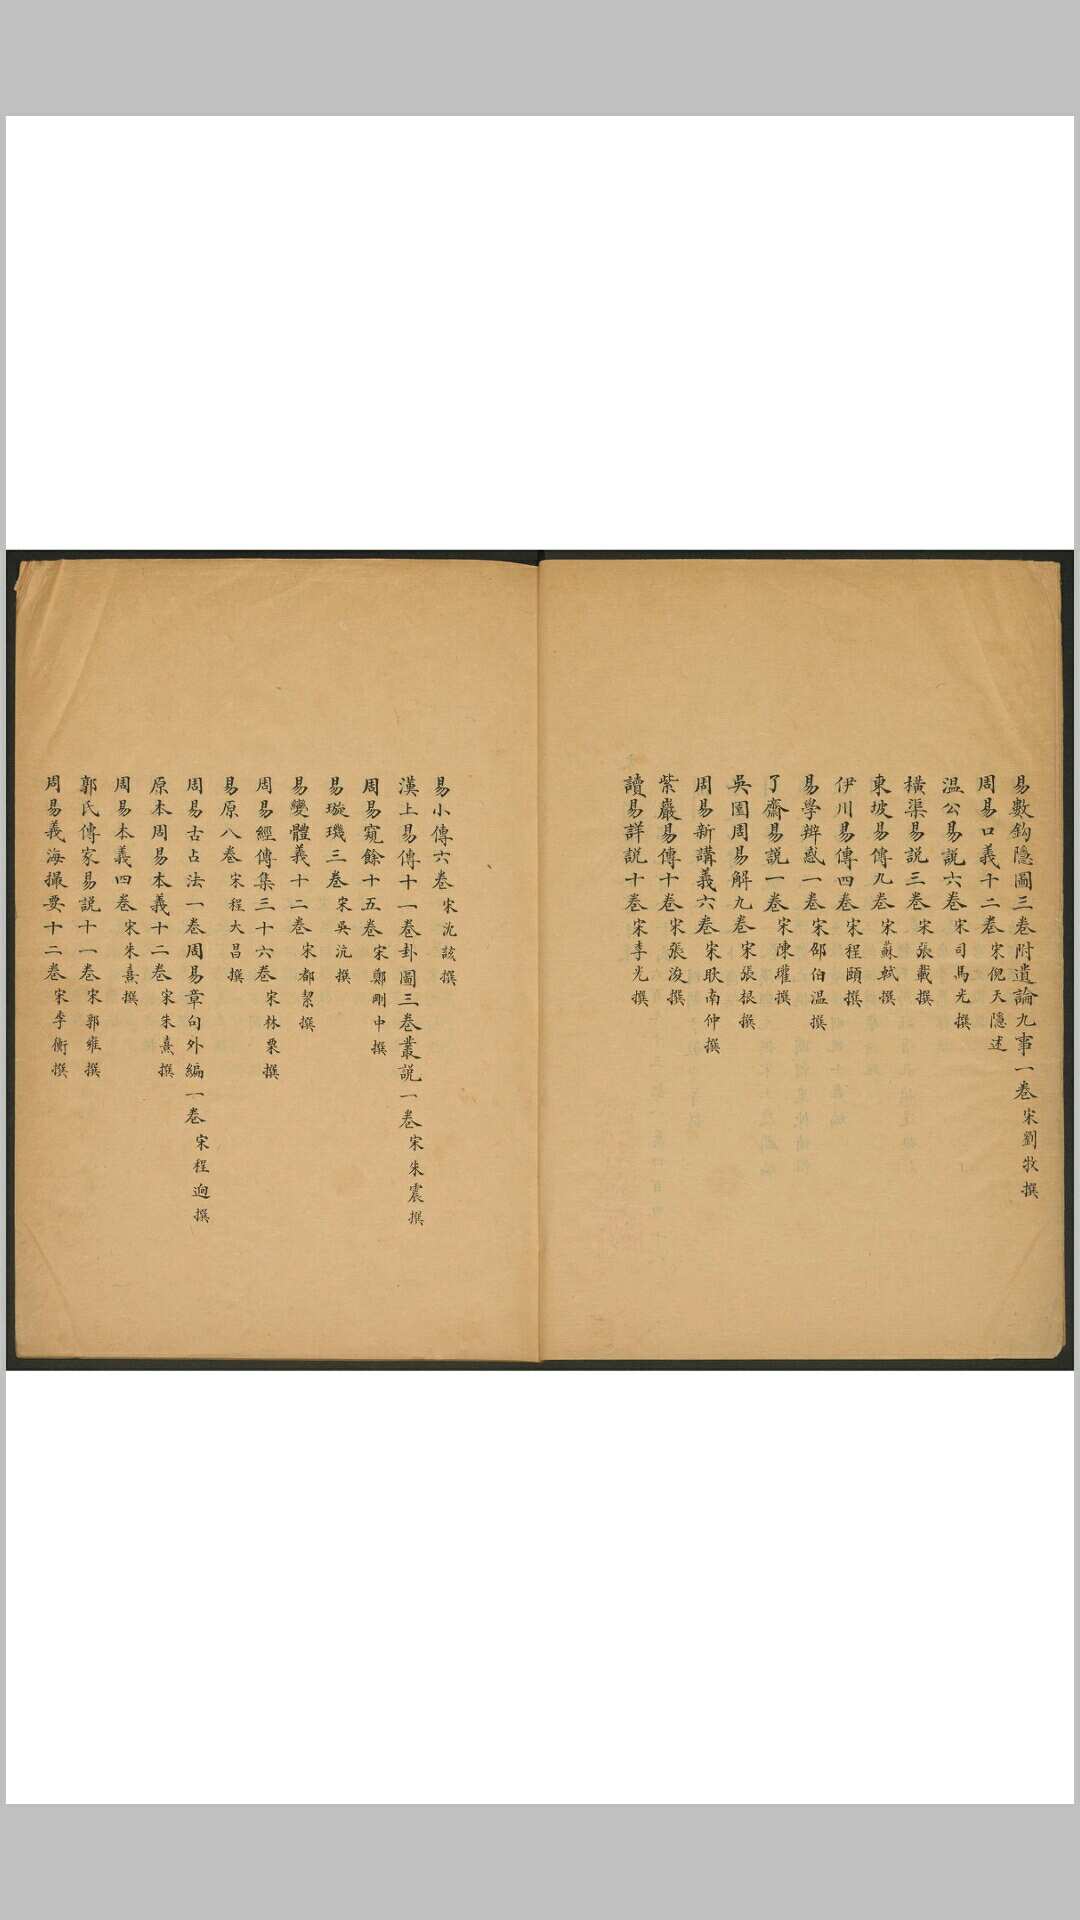 易數鈎隱圖三卷附遺論九事一卷宋劉牧撰
周易口義十二卷宋倪天隱述
温公易説六卷宋司馬光撰
橫渠易説三卷宋張載撰
東坡易傳九卷宋蘇軾撰
伊川易傳四卷宋程頤撰
易學辨惑一卷宋邵伯温撰
了齋易説一卷宋陳瓘撰
吳園周易解九卷宋張根撰
周易新講義六卷宋耿南仲撰
紫巖易傳十卷宋張浚撰
讀易詳説十卷宋李光撰
易小傳六卷宋沈該撰
漢上易傳十一卷卦圖三卷叢説一卷宋朱震撰
周易窺餘十五卷宋鄭剛中撰
易璇璣三卷宋吳沆撰
易變體義十二卷宋都絜撰
周易經傳集三十六卷宋林栗撰
易原八卷宋程大昌撰
周易古占法一卷周易章句外編一卷宋程迥撰
原本周易本義十二卷宋朱熹撰
周易本義四卷宋朱熹撰
郭氏傳家易説十一卷宋郭雍撰
周易義海撮要十二卷宋李衡撰